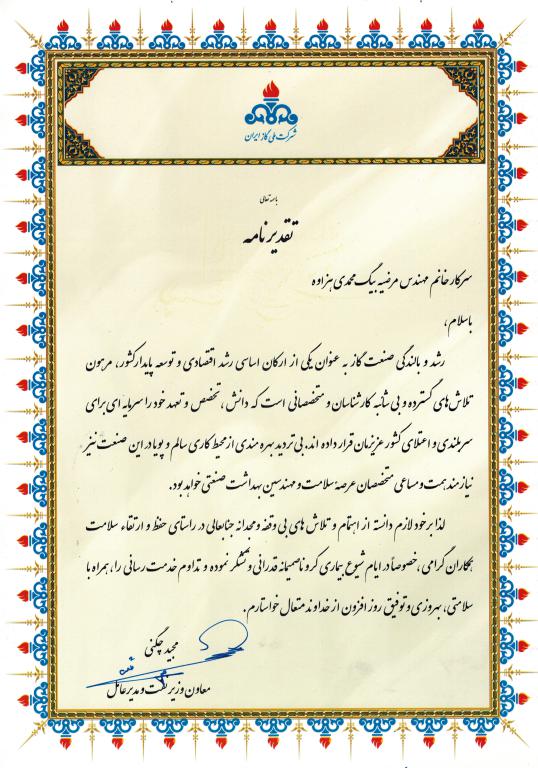 شرکت ملی گاز ایران
باسمه تعالی
تقدیرنامه
سرکار خانم مهندس مرضیه بیگ محمدی هزاوه
باسلام،
رشد و بالندگی صنعت گاز به عنوان یکی از ارکان اساسی رشد اقتصادی و توسعه پایدار کشور، مرهون
تلاش های گسترده و بی شائبه کارشناسان و متخصصانی است که دانش، تخصص و تعهد خود را سرمایه ای برای
سربلندی و اعتلای کشور عزیزمان قرار داده اند. بی تردید بهره مندی از محیط کاری سالم و پویا در این صنعت نیز
نیازمند همت و مساعی متخصصان عرصه سلامت و مهندسین بهداشت صنعتی خواهد بود.
لذا بر خود لازم دانسته از اهتمام و تلاش های بی وقفه ومجدانه جنابعالی در راستای حفظ و ارتقاء سلامت
همکاران گرامی، خصوصاً در ایام شیوع بیماری کرونا صمیمانه قدردانی و تشکر نموده و تداوم خدمت رسانی را، همراه با
سلامتی، بهروزی و توفیق روز افزون از خداوند متعال خواستارم.
مجید چگنی
معاون وزیر نفت و مدیرعامل